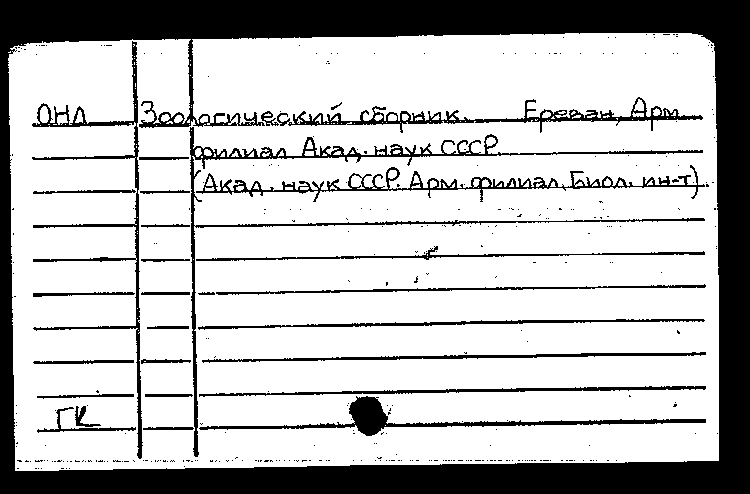 ОНЛ Зоологический сборник. Ереван, Арм.
филиал Акад. наук СССР.
(Акад. наук СССР. Арм. филиал. Биол. ин-т).
ГК